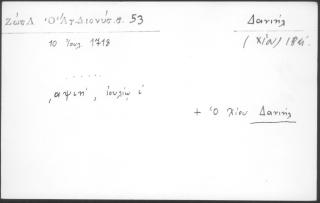 Ζώπλ Ὁ Ἁγ. Διονύσ. σ. 53
Δανιήλ
10 Ἰουλ. 1718
(Χίου) 18
. . . . . .
͵αψιηʹ, ἰουλίῳ ιʹ
+ Ὁ Χίου Δανιήλ